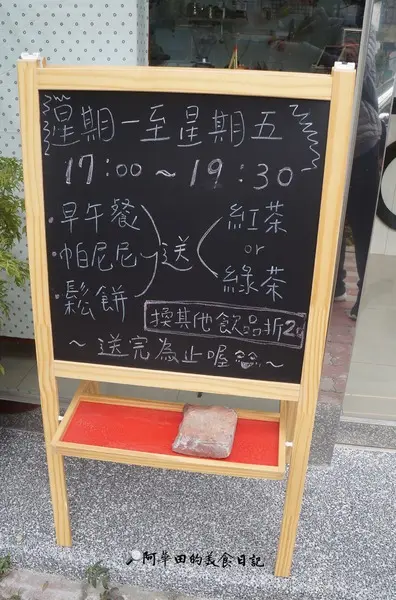 星期一至星期五
17:00~19:30
·早午餐
·帕尼尼
·鬆餅
送
紅茶
or
綠茶
換其他飲品折20
~送完為止喔~
阿華田的美食日記